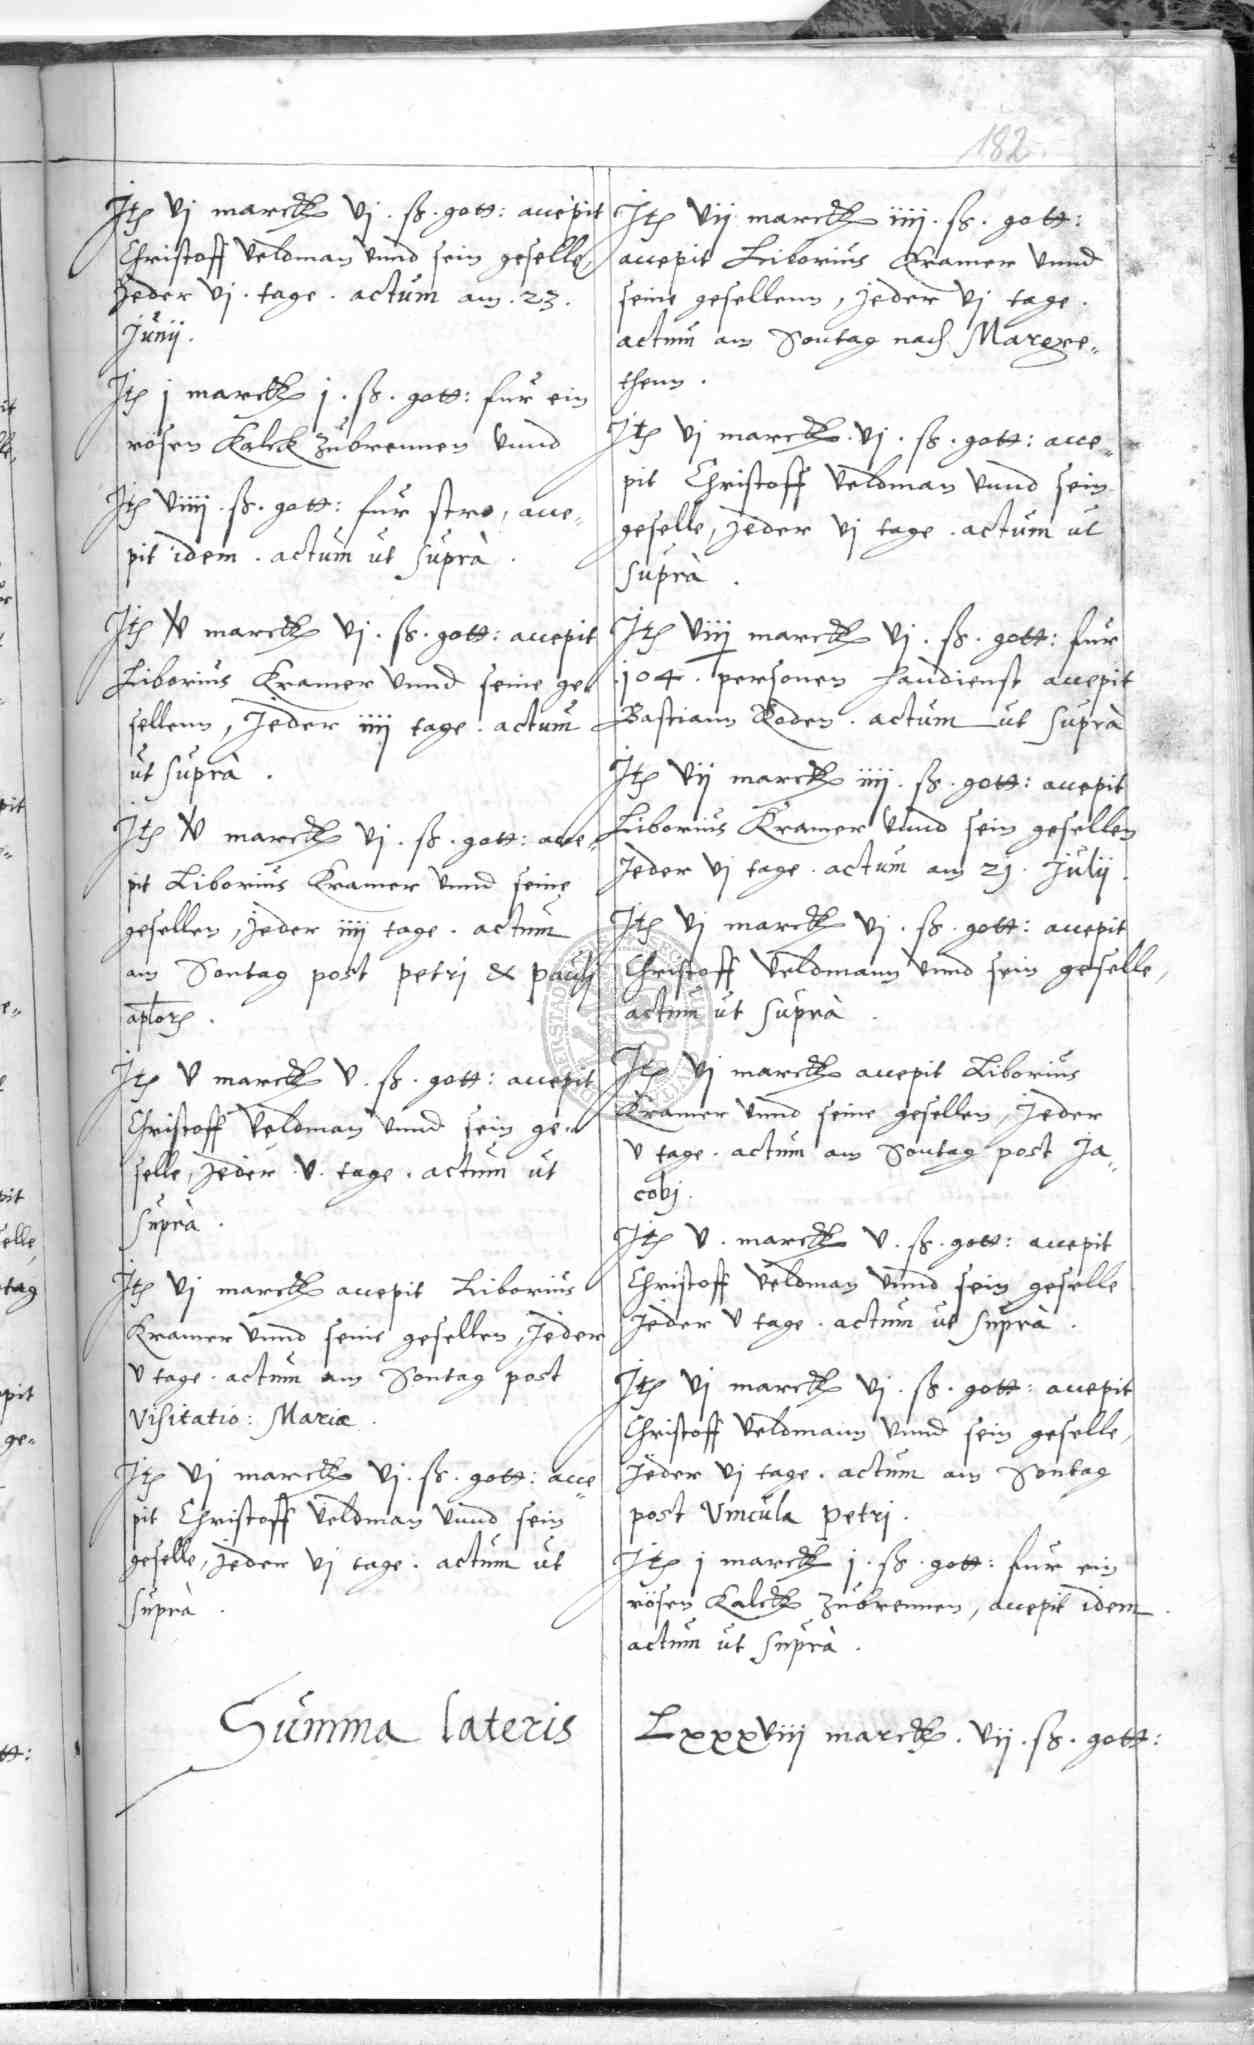 182.
Itꝫ vj marckꝫ vj. ß. gott: accepit
Christoff Veldman vnnd sein geselle,
Jeder vj. tage. actum am. 23.
Junij.
Itꝫ j marckꝫ j. ß. gott: fur ein
rösen Kalck zubrennen vnnd
Itꝫ viiij. ß. gott: fur stro, acce„
pit idem. actum ut suprà.
Itꝫ marckꝫ vj. ß. gott: accepit
Liborius Kramer vnnd seine ge„
sellenn, Jeder iiij tage. actum
ut suprà.
Itꝫ marckꝫ vj. ß. gott: acce„
pit Liborius Kramer vnnd seine
gesellen, Jeder iiij tage. actum
am Sontag post petri & pauli
aplorꝫ.
Itꝫ v marckꝫ v. ß. gott: accepit
Christoff Veldman vnnd sein ge„
selle, Jeder v. tage. actum ut
suprà.
Itꝫ vj marckꝫ accepit Liborius
Kramer vnnd seine gesellen, Jeder
v tage. actum am Sontag post
visitatio: Mariæ.
Itꝫ vj marckꝫ vj. ß. gott: acce„
pit Christoff Veldman vnnd sein
geselle, Jeder vj tage. actum ut
suprà.
Itꝫ vij marckꝫ iiij. ß. gott:
accepit Liborius Kramer vnnd
seine gesellenn, Jeder vj tage.
actum am Sontag nach Margre„
thenn.
Itꝫ vj marckꝫ. vj. ß. gott: acce„
pit Christoff Veldman vnnd sein
geselle, Jeder vj tage. actum ut
suprà.
Itꝫ marckꝫ vj. ß. gott: fur
104. personen handienst accepit
Bastiann Roden. actum ut suprà
Itꝫ vij marckꝫ iiij. ß. gott: accepit
Liborius Kramer vnnd sein gesellen
Jeder vj tage. actum am 21. Julij.
Itꝫ vj marckꝫ vj. ß. gott: accepit
Christoff Veldmann vnnd sein geselle,
actum ut suprà.
Itꝫ vj marckꝫ accepit Liborius
Kramer vnnd seine gesellen, Jeder
v tage. actum am Sontag post Ja„
cobj.
Itꝫ v. marckꝫ v. ß. gott: accepit
Christoff Veldman vnnd sein geselle
Jeder v tage. actum ut suprà.
Itꝫ vj marckꝫ vj. ß. gott: accepit
Christoff Veldmann vnnd sein geselle,
Jeder vj tage. actum am Sontag
post Vincula petri.
Itꝫ j marckꝫ j. ß. gott: fur ein
rösen Kalckꝫ zubrennen, accepit idem.
actum ut suprà.
Summa lateris Lxxxviij marckꝫ. vij. ß. gott: